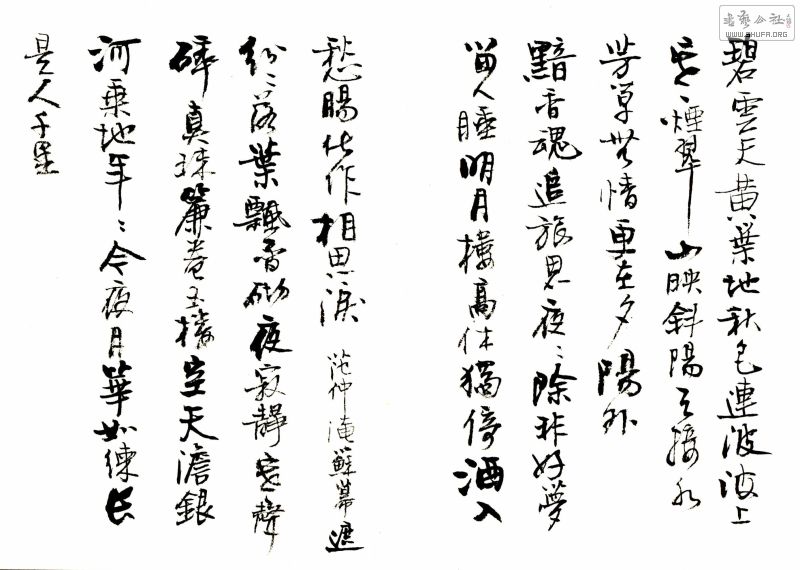 碧雲天黄葉地秋色連波波上
寒々煙翠山映斜陽天接水
芳草無情更在夕陽外
黯香魂追旅思夜々除非好夢
留人睡明月樓高休獨倚酒入
愁腸化作相思淚 范仲淹蘇幕遮
紛々落葉飄香砌夜寂靜寒聲
碎真珠簾卷玉樓空天澹銀
河垂地年々今夜月華如練長
是人千里
書藝公社
WWW.SHUFA.ORG